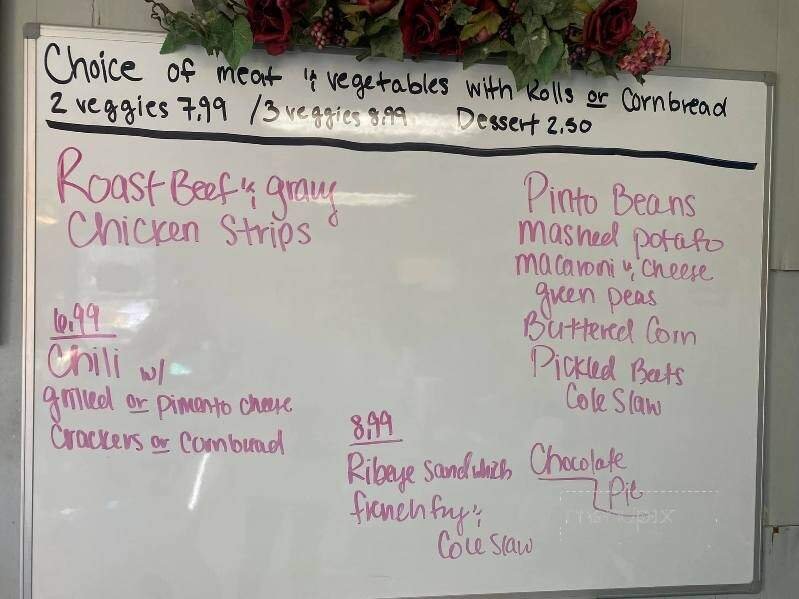 Choice of meat & vegetables with Rolls or Cornbread
2 veggies 7.99 / 3 veggies 8.99 Dessert 2.50
Roast Beef & gravy
Chicken Strips
Pinto Beans
mashed potato
macaroni & cheese
green peas
Buttered Corn
Pickled Beets
Cole Slaw
6.99
Chili w/
grilled or pimento cheese
Crackers or Cornbread
8.99
Ribeye sandwhich
french fry &
Cole Slaw
Chocolate
Pie